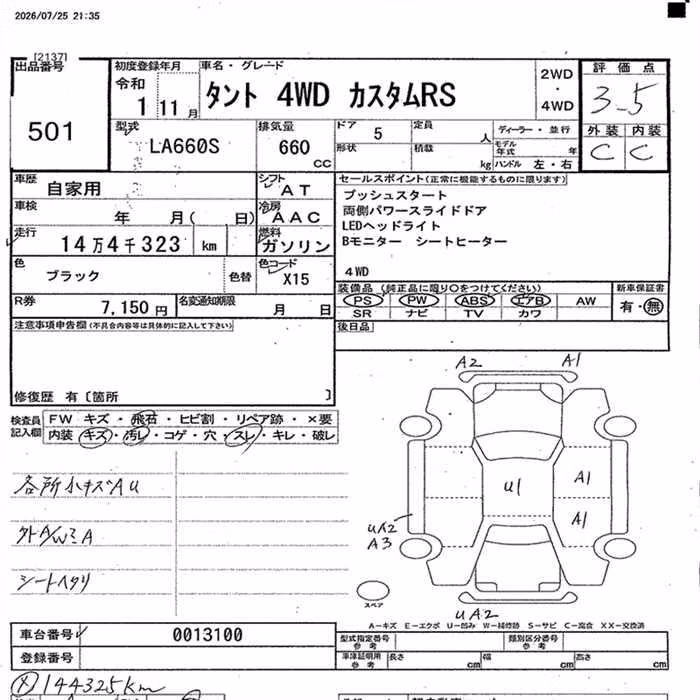 2026/07/25 21:35
[2137]
出品番号
501
初度登録年月
令和
1 11 月
車名・グレード
タント 4WD カスタムRS
2WD
・
4WD
評価点
3.5
外装 内装
C C
型式
LA660S
排気量
660
CC
ドア 5
定員 人
形状
積載 kg
ディーラー・並行
モデル年式 年
ハンドル 左・右
車歴
自家用
シフト
AT
車検
年 月( 日)
冷房
AAC
走行
14万4千323 km
燃料
ガソリン
色
ブラック
色替
色コード
X15
R券
7,150円
名変通知期限
月 日
セールスポイント(正常に機能するものに限ります)
プッシュスタート
両側パワースライドドア
LEDヘッドライト
Bモニター シートヒーター
4WD
装備品 (純正品に限り○をつけてください)
PS PW ABS エアB AW
SR ナビ TV カワ
新車保証書
有・無
後日品
注意事項申告欄(不具合内容等は具体的に記入して下さい)
修復歴 有〔箇所 〕
検査員
記入欄
FW キズ・飛石・ヒビ割・リペア跡・×要
内装 キズ・汚レ・コゲ・穴・スレ・キレ・破レ
各所小キズAU
シートヘタリ
A2 A1
U1
A1
A1
UA2
A3
UA2
スペア
A－キズ E－エクボ U－凹み W－補修跡 S－サビ C－腐食 XX－交換済
車台番号
0013100
登録番号
型式指定番号
参考
類別区分番号
参考
車庫証明用
参考
長さ cm
幅 cm
高さ cm
144325km